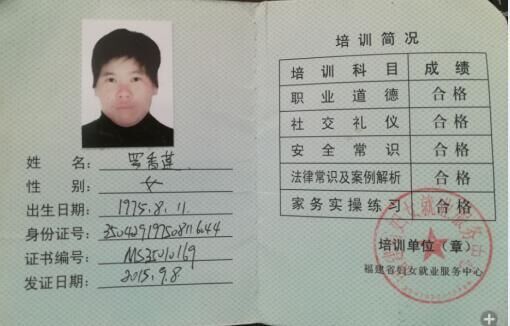 姓 名：罗香莲
性 别：女
出生日期：1975.8.11.
身份证号：
证书编号：MS35010169
发证日期：2015.9.8.
培训简况
培训科目 成绩
职业道德 合格
社交礼仪 合格
安全常识 合格
法律常识及案例解析 合格
家务实操练习 合格
培训单位（章）
福建省妇女就业服务中心